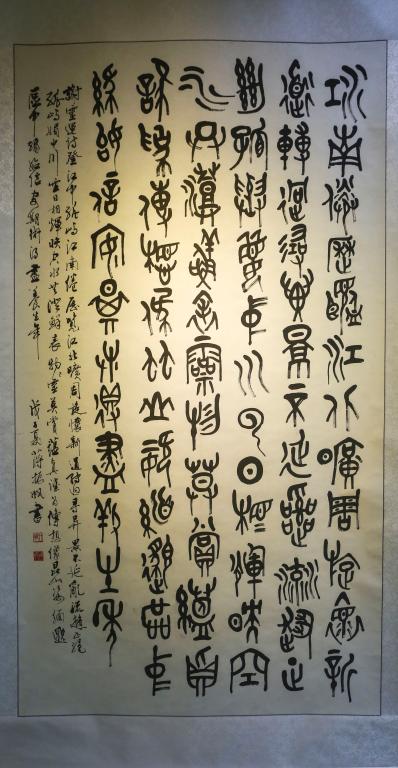 江南倦歷覽江北曠周旋懷新
道轉迥尋異景不延亂流趨正
絕孤嶼媚中川雲日相輝映空
水共澄鮮表靈物莫賞蘊真
誰為傳想像昆山姿緬邈區中
緣始信安期術得盡養生年
謝靈運詩登江中孤嶼江南倦歷覽江北曠周旋懷新道轉迥尋異景不延亂流趨正絕
孤嶼媚中川雲日相輝映空水共澄鮮表物靈莫賞蘊真誰為傳想像昆山姿緬邈
區中緣始信安期術得盡養生年 戊子夏蔣振書